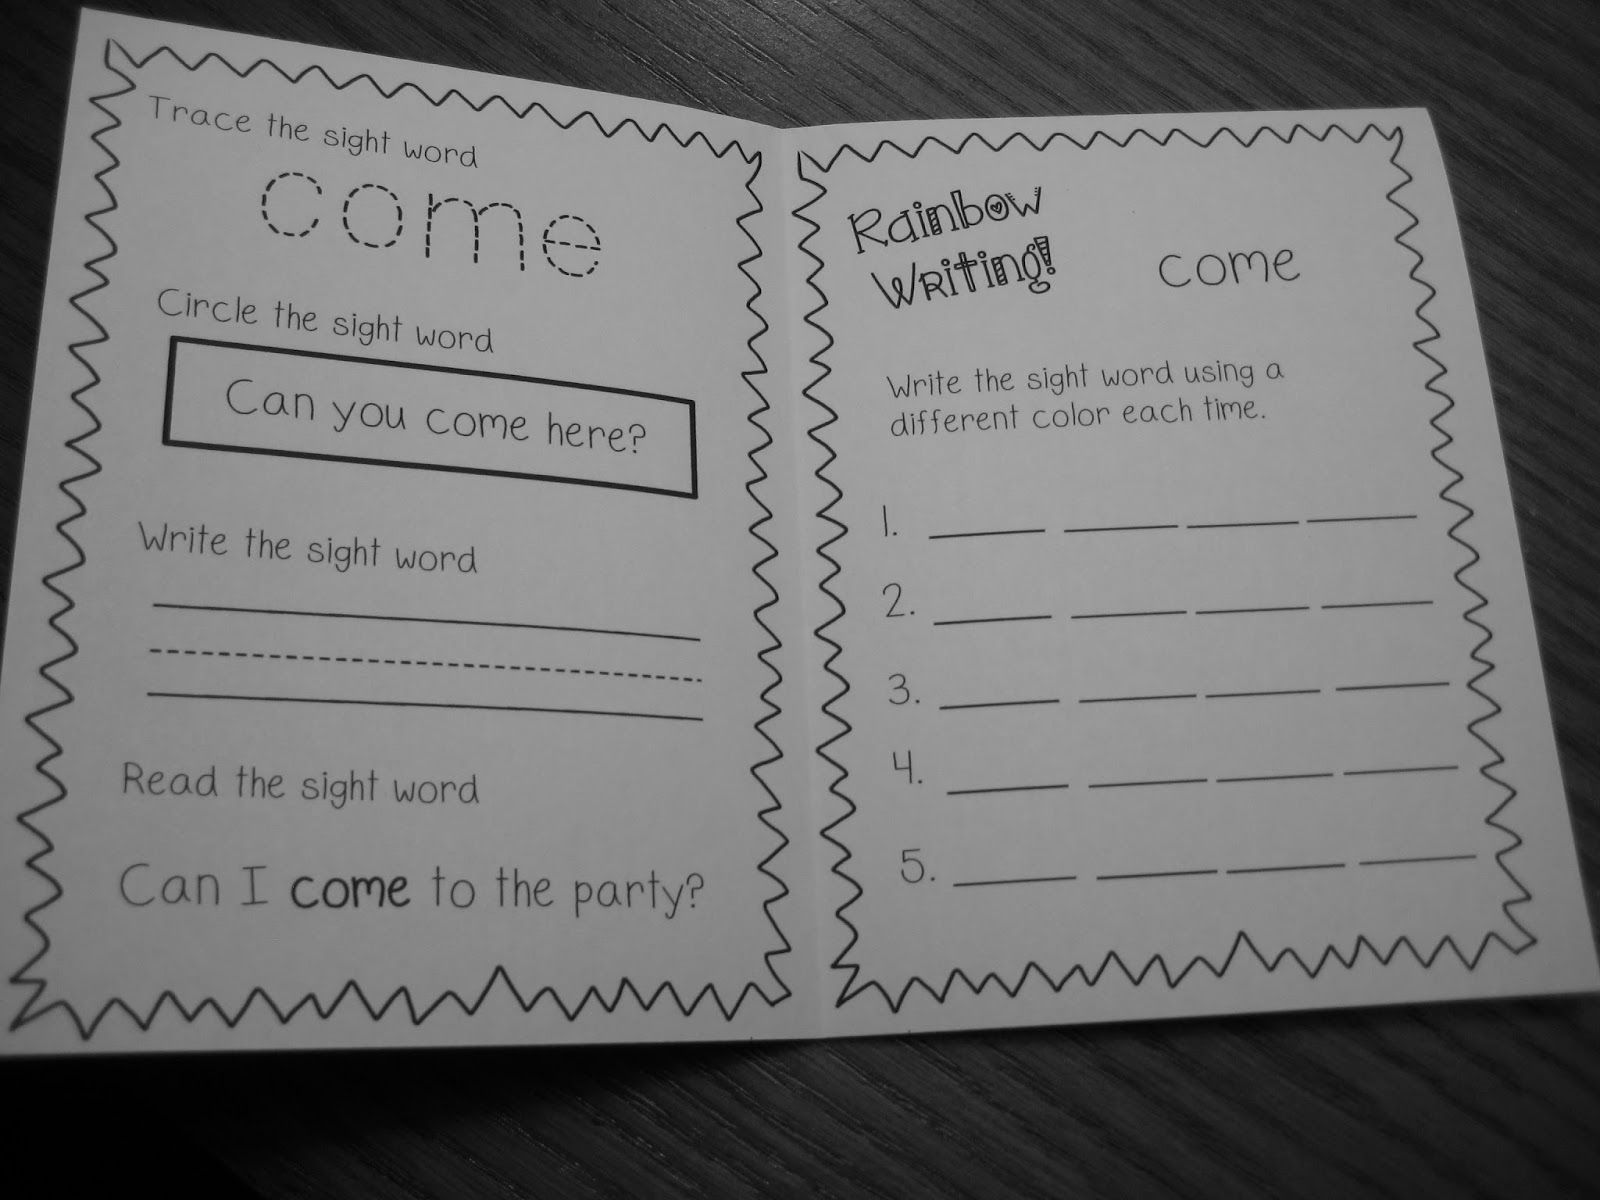 Trace the sight word
come
Circle the sight word
Can you come here?
Write the sight word
Read the sight word
Can I come to the party?
Rainbow
Writing!
come
Write the sight word using a
different color each time.
1.
2.
3.
4.
5.